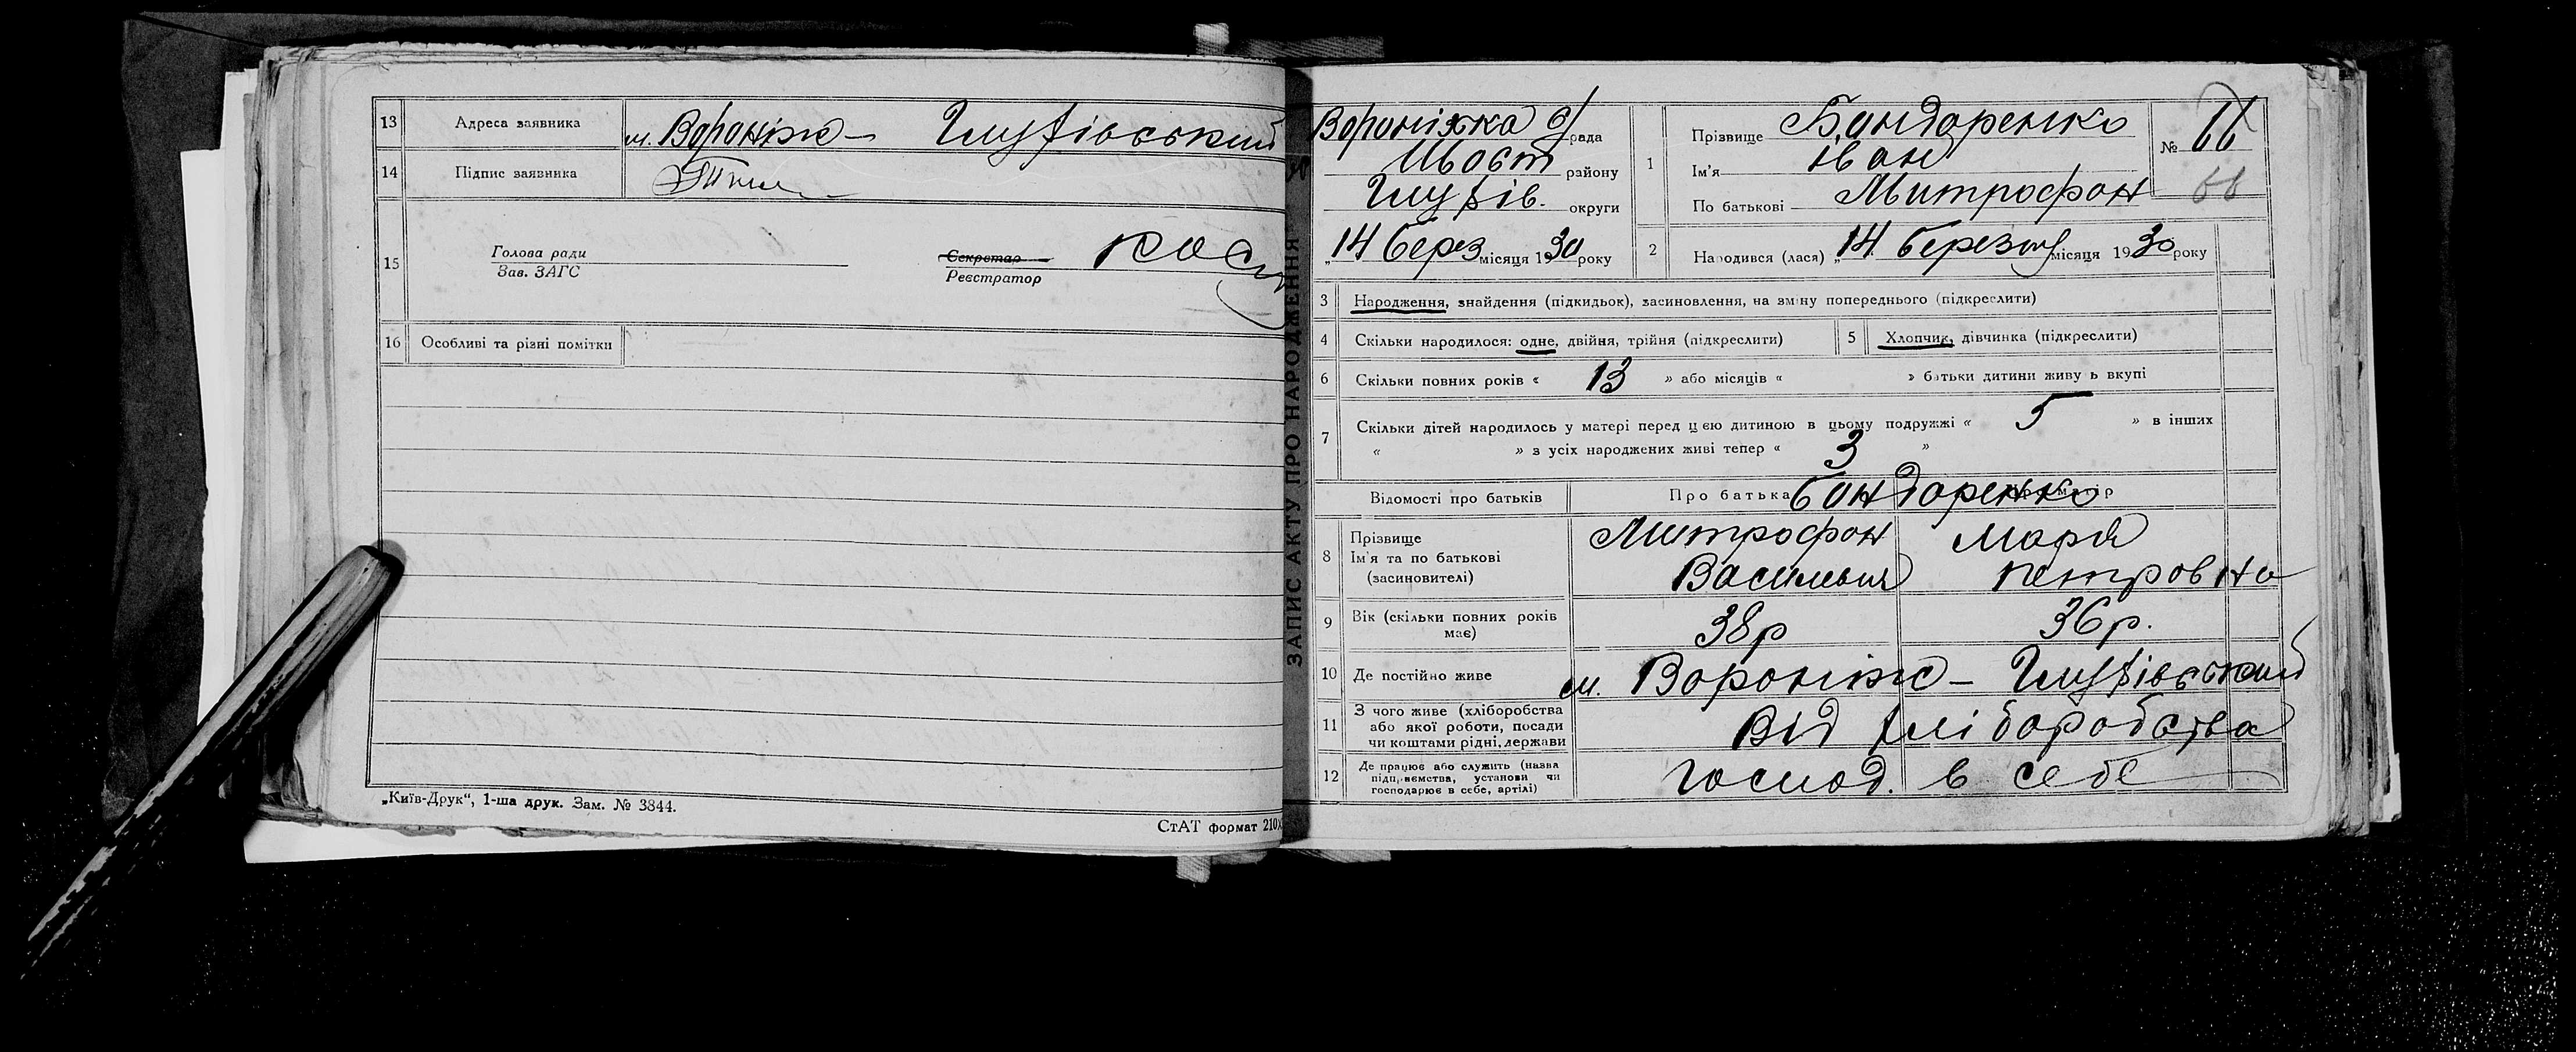 13 Адреса заявника м. Вороніж – Глухівський
14 Підпис заявника
15 Голова ради
Зав. ЗАГС
Секретар
Реєстратор
16 Особливі та різні помітки
„Київ-Друк“, 1-ша друк. Зам. № 3844.
СтАТ формат 210
ЗАПИС АКТУ ПРО НАРОДЖЕННЯ
Вороніжка с/рада
Шост району
Глухів. округи
„14 берез місяця 1930 року
1 Прізвище Бондаренко
Ім'я іван
По батькові Митрофон
№ 66
66
2 Народився (лася) „14. березня місяця 1930 року
3 Народження, знайдення (підкидьок), засиновлення, на зміну попереднього (підкреслити)
4 Скільки народилося: одне, двійня, трійня (підкреслити)
5 Хлопчик, дівчинка (підкреслити)
6 Скільки повних років « 13 » або місяців « » батьки дитини живуть вкупі
7 Скільки дітей народилось у матері перед цією дитиною в цьому подружжі « 5 » в інших
« » з усіх народжених живі тепер « 3 »
Відомості про батьків Про батька Бондаренко
8 Прізвище
Ім'я та по батькові
(засиновителі)
Митрофон Марія
Василевич Петровна
9 Вік (скільки повних років має) 38р 36р.
10 Де постійно живе м. Вороніж – Глухівський
11 З чого живе (хліборобства
або якої роботи, посади
чи коштами рідні, держави
Від хліборобства
12 Де працює або служить (назва
підприємства, установи чи
господарює в себе, артілі)
господ. в себе